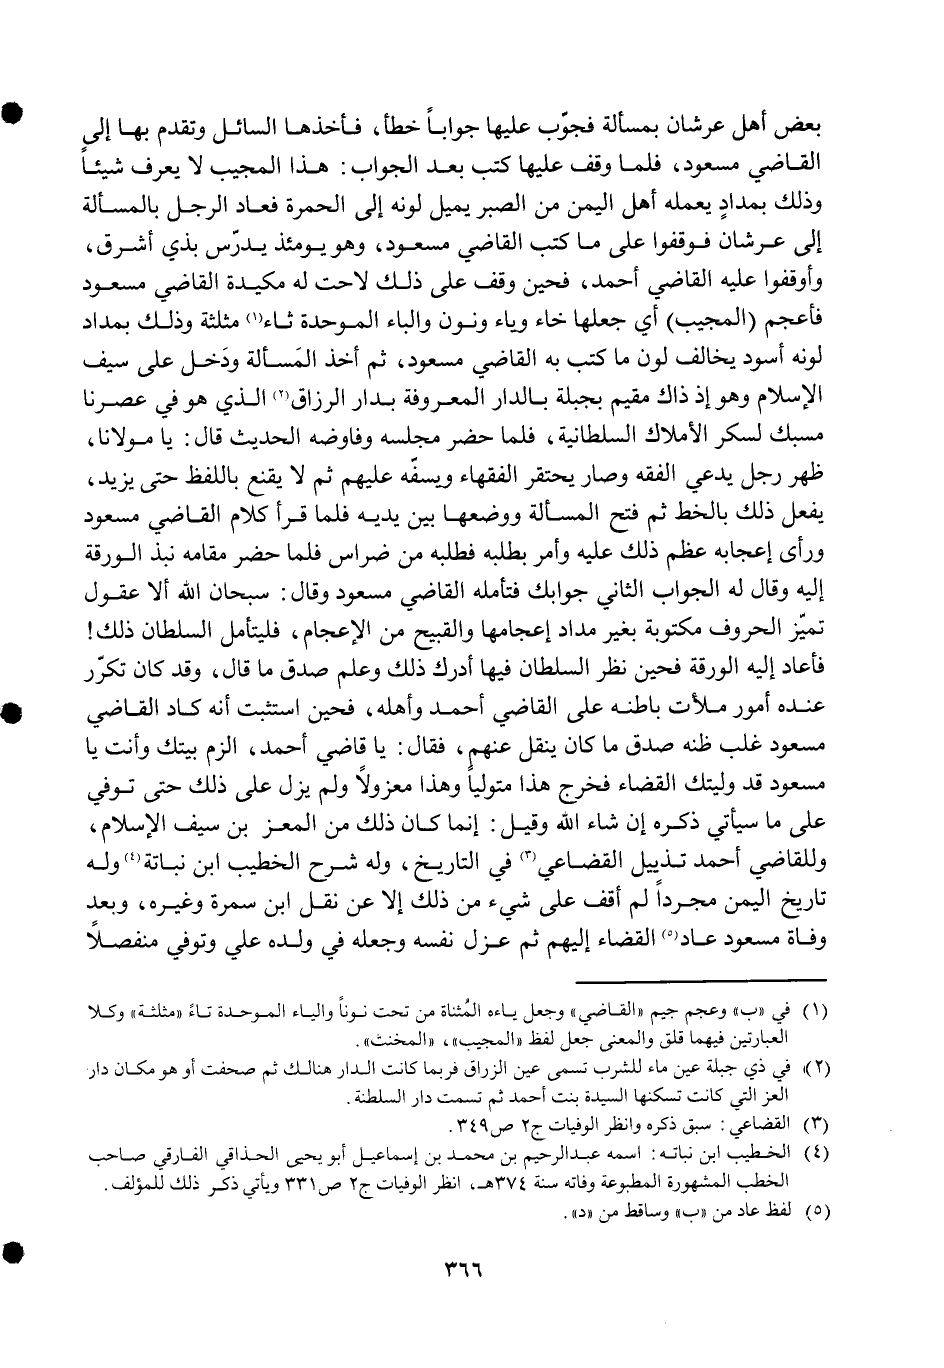 بعض أهل عرشان بمسألة فجوّب عليها جواباً خطأ، فأخذها السائل وتقدم بها إلى
القاضي مسعود، فلما وقف عليها كتب بعد الجواب: هذا المجيب لا يعرف شيئاً
وذلك بمدادٍ يعمله أهل اليمن من الصبر يميل لونه إلى الحمرة فعاد الرجل بالمسألة
إلى عرشان فوقفوا على ما كتب القاضي مسعود، وهو يومئذ يدرّس بذي أشرق،
وأوقفوا عليه القاضي أحمد، فحين وقف على ذلك لاحت له مكيدة القاضي مسعود
فأعجم (المجيب) أي جعلها خاء وياء ونون والباء الموحدة ثاء(١) مثلثة وذلك بمداد
لونه أسود يخالف لون ما كتب به القاضي مسعود، ثم أخذ المَسألة ودَخل على سيف
الإسلام وهو إذ ذاك مقيم بجبلة بالدار المعروفة بدار الرزاق(٢) الذي هو في عصرنا
مسبك لسكر الأملاك السلطانية، فلما حضر مجلسه وفاوضه الحديث قال: يا مولانا،
ظهر رجل يدعي الفقه وصار يحتقر الفقهاء ويسفّه عليهم ثم لا يقنع باللفظ حتى يزيد،
يفعل ذلك بالخط ثم فتح المسألة ووضعها بين يديه فلما قرأ كلام القاضي مسعود
ورأى إعجابه عظم ذلك عليه وأمر بطلبه فطلبه من ضراس فلما حضر مقامه نبذ الورقة
إليه وقال له الجواب الثاني جوابك فتأمله القاضي مسعود وقال: سبحان الله ألا عقول
تميّز الحروف مكتوبة بغير مداد إعجامها والقبيح من الإعجام، فليتأمل السلطان ذلك!
فأعاد إليه الورقة فحين نظر السلطان فيها أدرك ذلك وعلم صدق ما قال، وقد كان تكرّر
عنده أمور ملأت باطنه على القاضي أحمد وأهله، فحين استثبت أنه كاد القاضي
مسعود غلب ظنه صدق ما كان ينقل عنهم، فقال: يا قاضي أحمد، الزم بيتك وأنت يا
مسعود قد وليتك القضاء فخرج هذا متولياً وهذا معزولاً ولم يزل على ذلك حتى توفي
على ما سيأتي ذكره إن شاء الله وقيل: إنما كان ذلك من المعز بن سيف الإسلام،
وللقاضي أحمد تذييل القضاعي(٣) في التاريخ، وله شرح الخطيب ابن نباتة(٤) وله
تاريخ اليمن مجرداً لم أقف على شيء من ذلك إلا عن نقل ابن سمرة وغيره، وبعد
وفاة مسعود عاد(٥) القضاء إليهم ثم عزل نفسه وجعله في ولده علي وتوفي منفصلاً
(١) في «ب» وعجم جيم «القاضي» وجعل ياءه المُثناة من تحت نوناً والياء الموحدة تاءً «مثلثة» وكلا
العبارتين فيهما قلق والمعنى جعل لفظ «المجيب»، «المخنث».
(٢) في ذي جبلة عين ماء للشرب تسمى عين الزراق فربما كانت الدار هنالك ثم صحفت أو هو مكان دار
العز التي كانت تسكنها السيدة بنت أحمد ثم تسمت دار السلطنة.
(٣) القضاعي: سبق ذكره وانظر الوفيات ج٢ ص٣٤٩.
(٤) الخطيب ابن نباته: اسمه عبدالرحيم بن محمد بن إسماعيل أبو يحيى الحذاقي الفارقي صاحب
الخطب المشهورة المطبوعة وفاته سنة ٣٧٤هـ، انظر الوفيات ج٢ ص٣٣١ ويأتي ذكر ذلك للمؤلف.
(٥) لفظ عاد من «ب» وساقط من «د».
٣٦٦